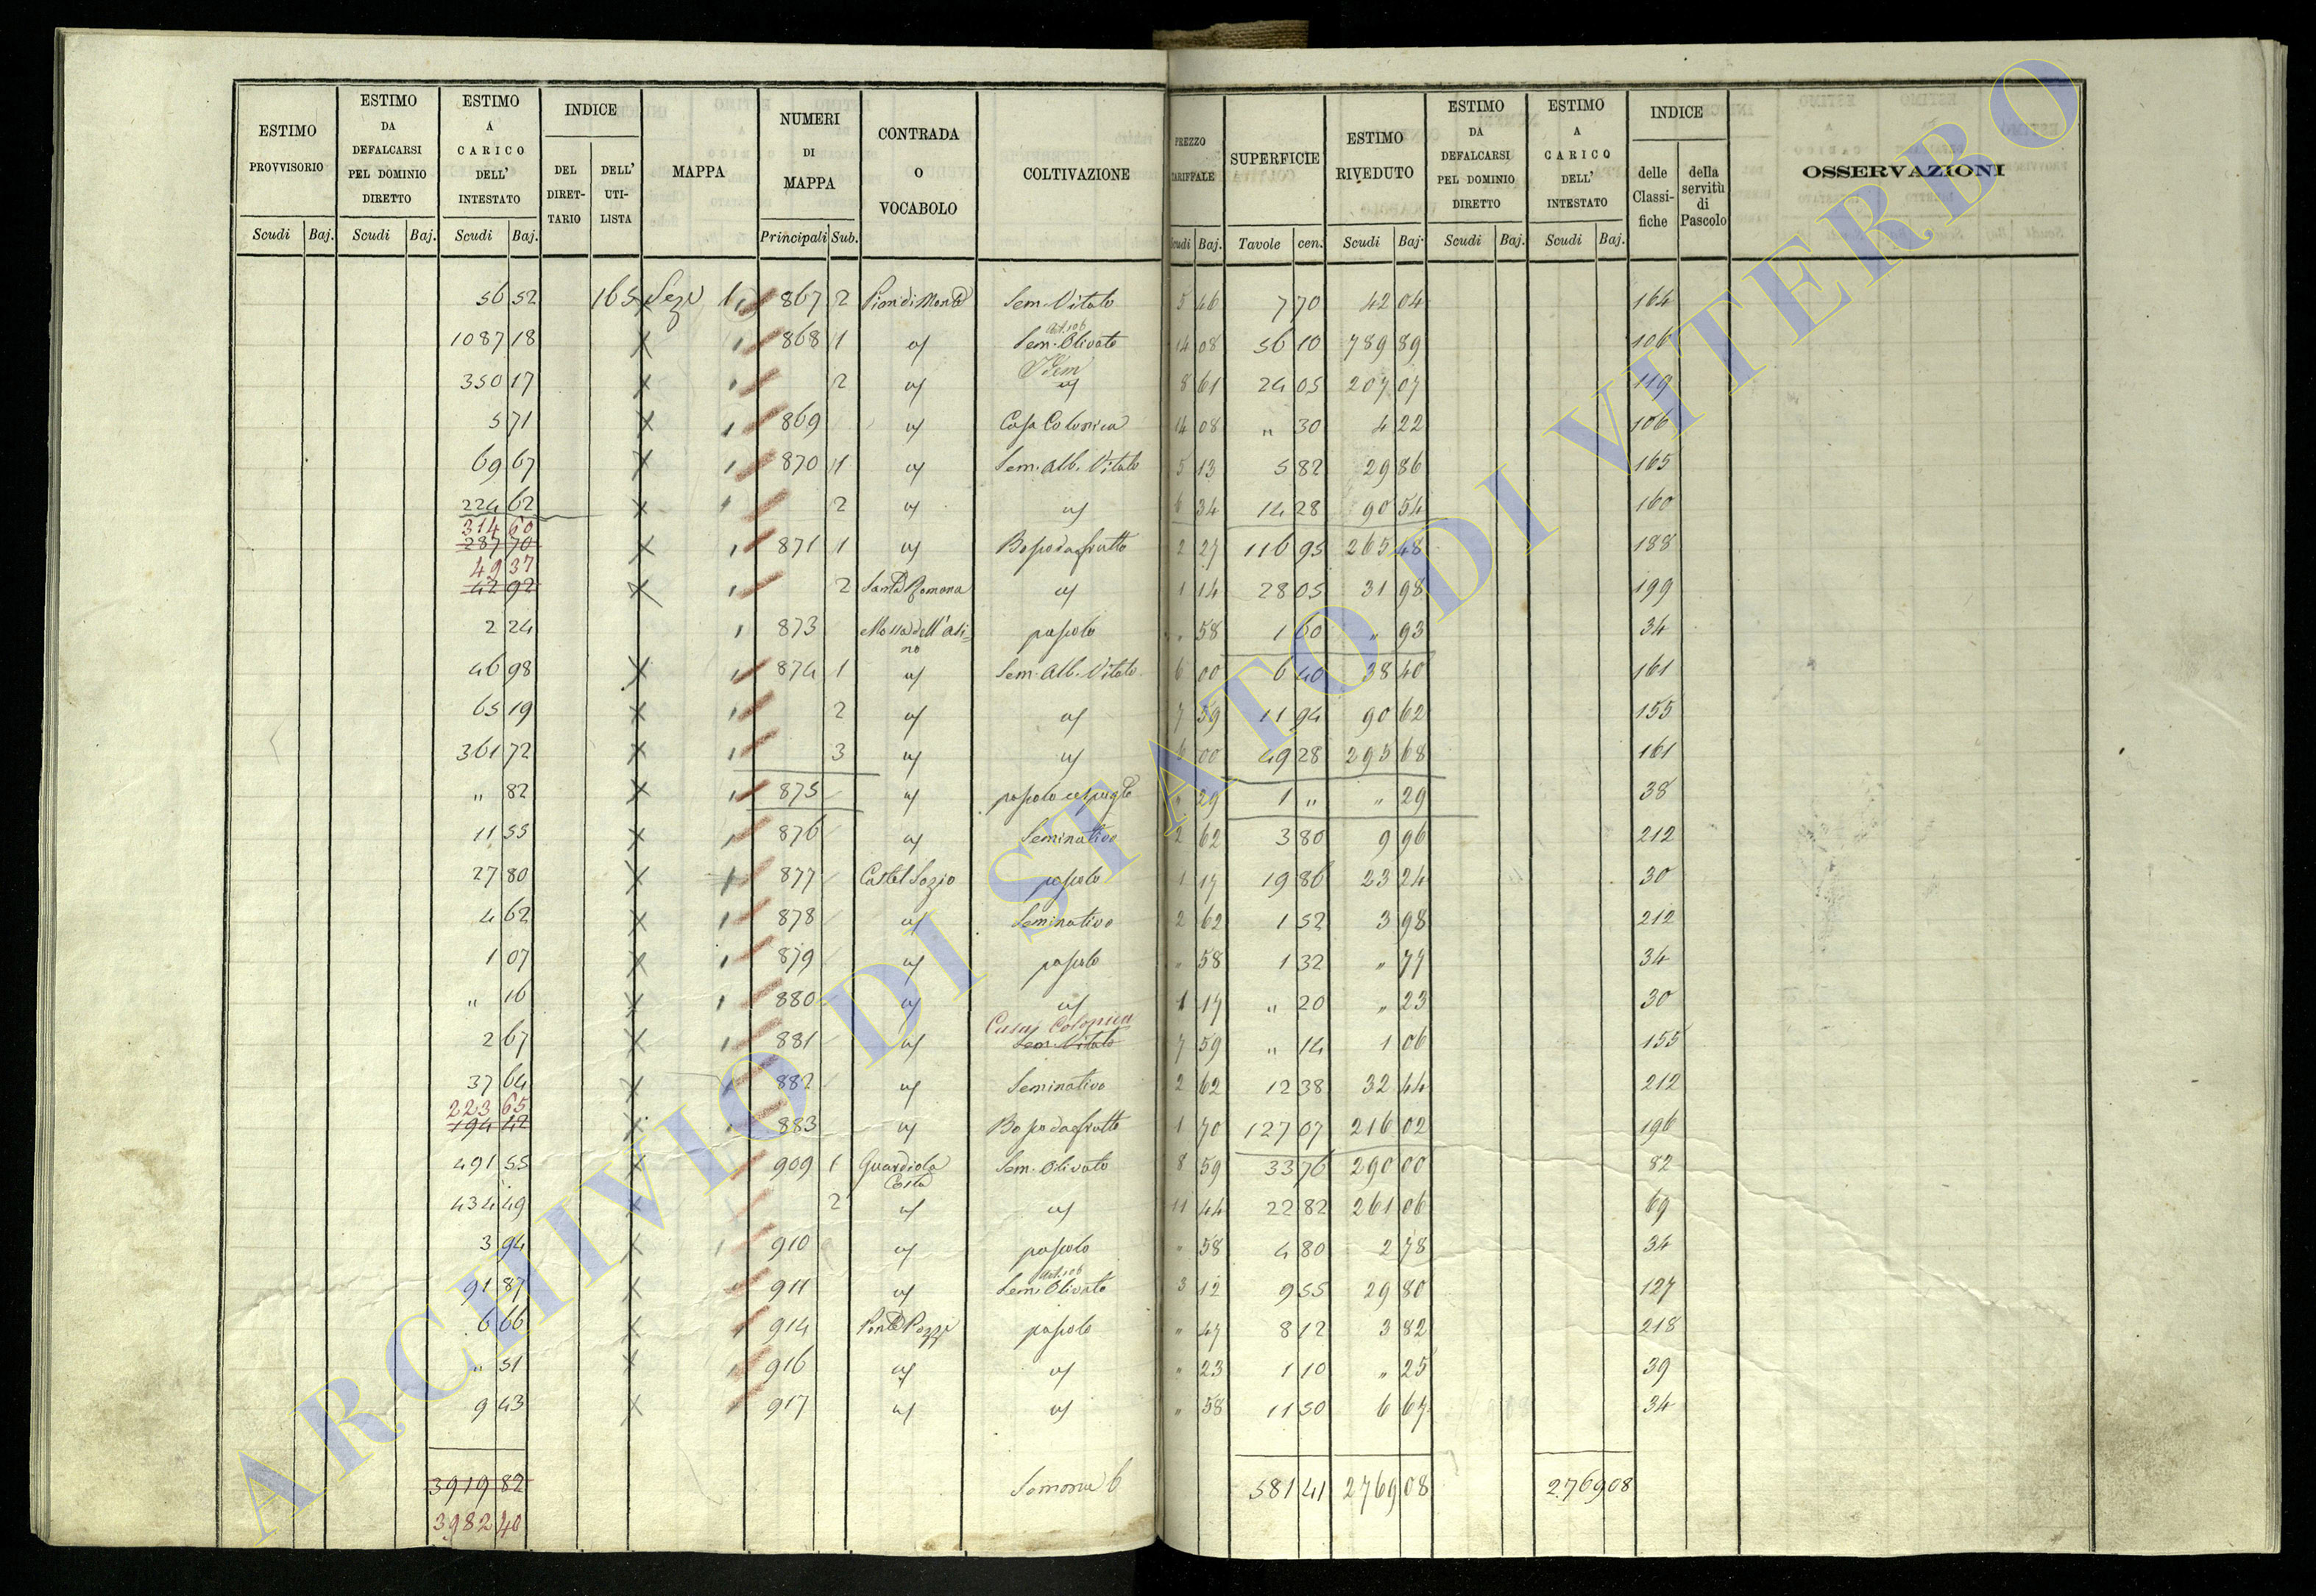 ESTIMO PROVVISORIO
ESTIMO DA DEFALCARSI PEL DOMINIO DIRETTO
ESTIMO A CARICO DELL' INTESTATO
INDICE
DEL DIRET-TARIO
DELL' UTI-LISTA
MAPPA
NUMERI DI MAPPA
CONTRADA O VOCABOLO
COLTIVAZIONE
PREZZO TARIFFALE
SUPERFICIE
ESTIMO RIVEDUTO
ESTIMO DA DEFALCARSI PEL DOMINIO DIRETTO
ESTIMO A CARICO DELL' INTESTATO
INDICE
delle Classi-fiche
della servitù di Pascolo
OSSERVAZIONI
Scudi Baj. Scudi Baj. Scudi Baj. Principali Sub. Scudi Baj. Tavole cen. Scudi Baj. Scudi Baj. Scudi Baj.
56 52 165 Sez. 1 867 2 Pian di Monte Sem. Vitato 5 46 7 70 42 04 164
Art. 106
1087 18 X 1 868 1 " Sem. Olivato 14 08 56 10 789 89 106
Idem
350 17 X 1 2 " " 8 61 24 05 207 07 119
5 71 X 1 869 " Casa Colonica 14 08 " 30 4 22 106
69 67 X 1 870 1 " Sem. Alb. Vitato 5 13 5 82 29 86 165
224 62 X 1 2 " " 6 34 14 28 90 54 160
314 60
287 70 X 1 871 1 " Bosco da frutto 2 27 116 95 265 48 188
49 37
42 92 X 1 2 Santa Romana " 1 14 28 05 31 98 199
2 24 1 873 Massa dell'Asino pascolo " 58 1 60 " 93 34
46 98 X 1 874 1 " Sem. Alb. Vitato 6 00 6 40 38 40 161
65 19 X 1 2 " " 7 59 11 94 90 62 155
361 72 X 1 3 " " 6 00 49 28 295 68 161
" 82 X 1 875 " pascolo cespug.to " 29 1 " " 29 38
11 55 X 1 876 " Seminativo 2 62 3 80 9 96 212
27 80 X 1 877 Castel Sozio pascolo 1 17 19 86 23 24 30
4 62 X 1 878 " Seminativo 2 62 1 52 3 98 212
1 07 X 1 879 " pascolo " 58 1 32 " 77 34
" 16 X 1 880 " " 1 17 " 20 " 23 30
Casa Colonica
2 67 X 1 881 " Sem. Vitato 7 59 " 14 1 06 155
37 64 X 1 882 " Seminativo 2 62 12 38 32 44 212
223 65
194 42 X 1 883 " Bosco da frutto 1 70 127 07 216 02 196
491 55 X 909 1 Guardiola Costa Sem. Olivato 8 59 33 76 290 00 82
434 49 X 2 " " 11 44 22 82 261 06 69
3 94 X 1 910 " pascolo " 58 4 80 2 78 34
Art. 106
91 87 X 911 " Sem. Olivato 3 12 9 55 29 80 127
6 66 X 1 914 Ponte Pozzi pascolo " 47 8 12 3 82 218
" 51 X 1 916 " " " 23 1 10 " 25 39
9 43 X 917 " " " 58 11 50 6 67 34
3919 82 Somma 6 581 41 2769 08 2769 08
3982 40
ARCHIVIO DI STATO DI VITERBO